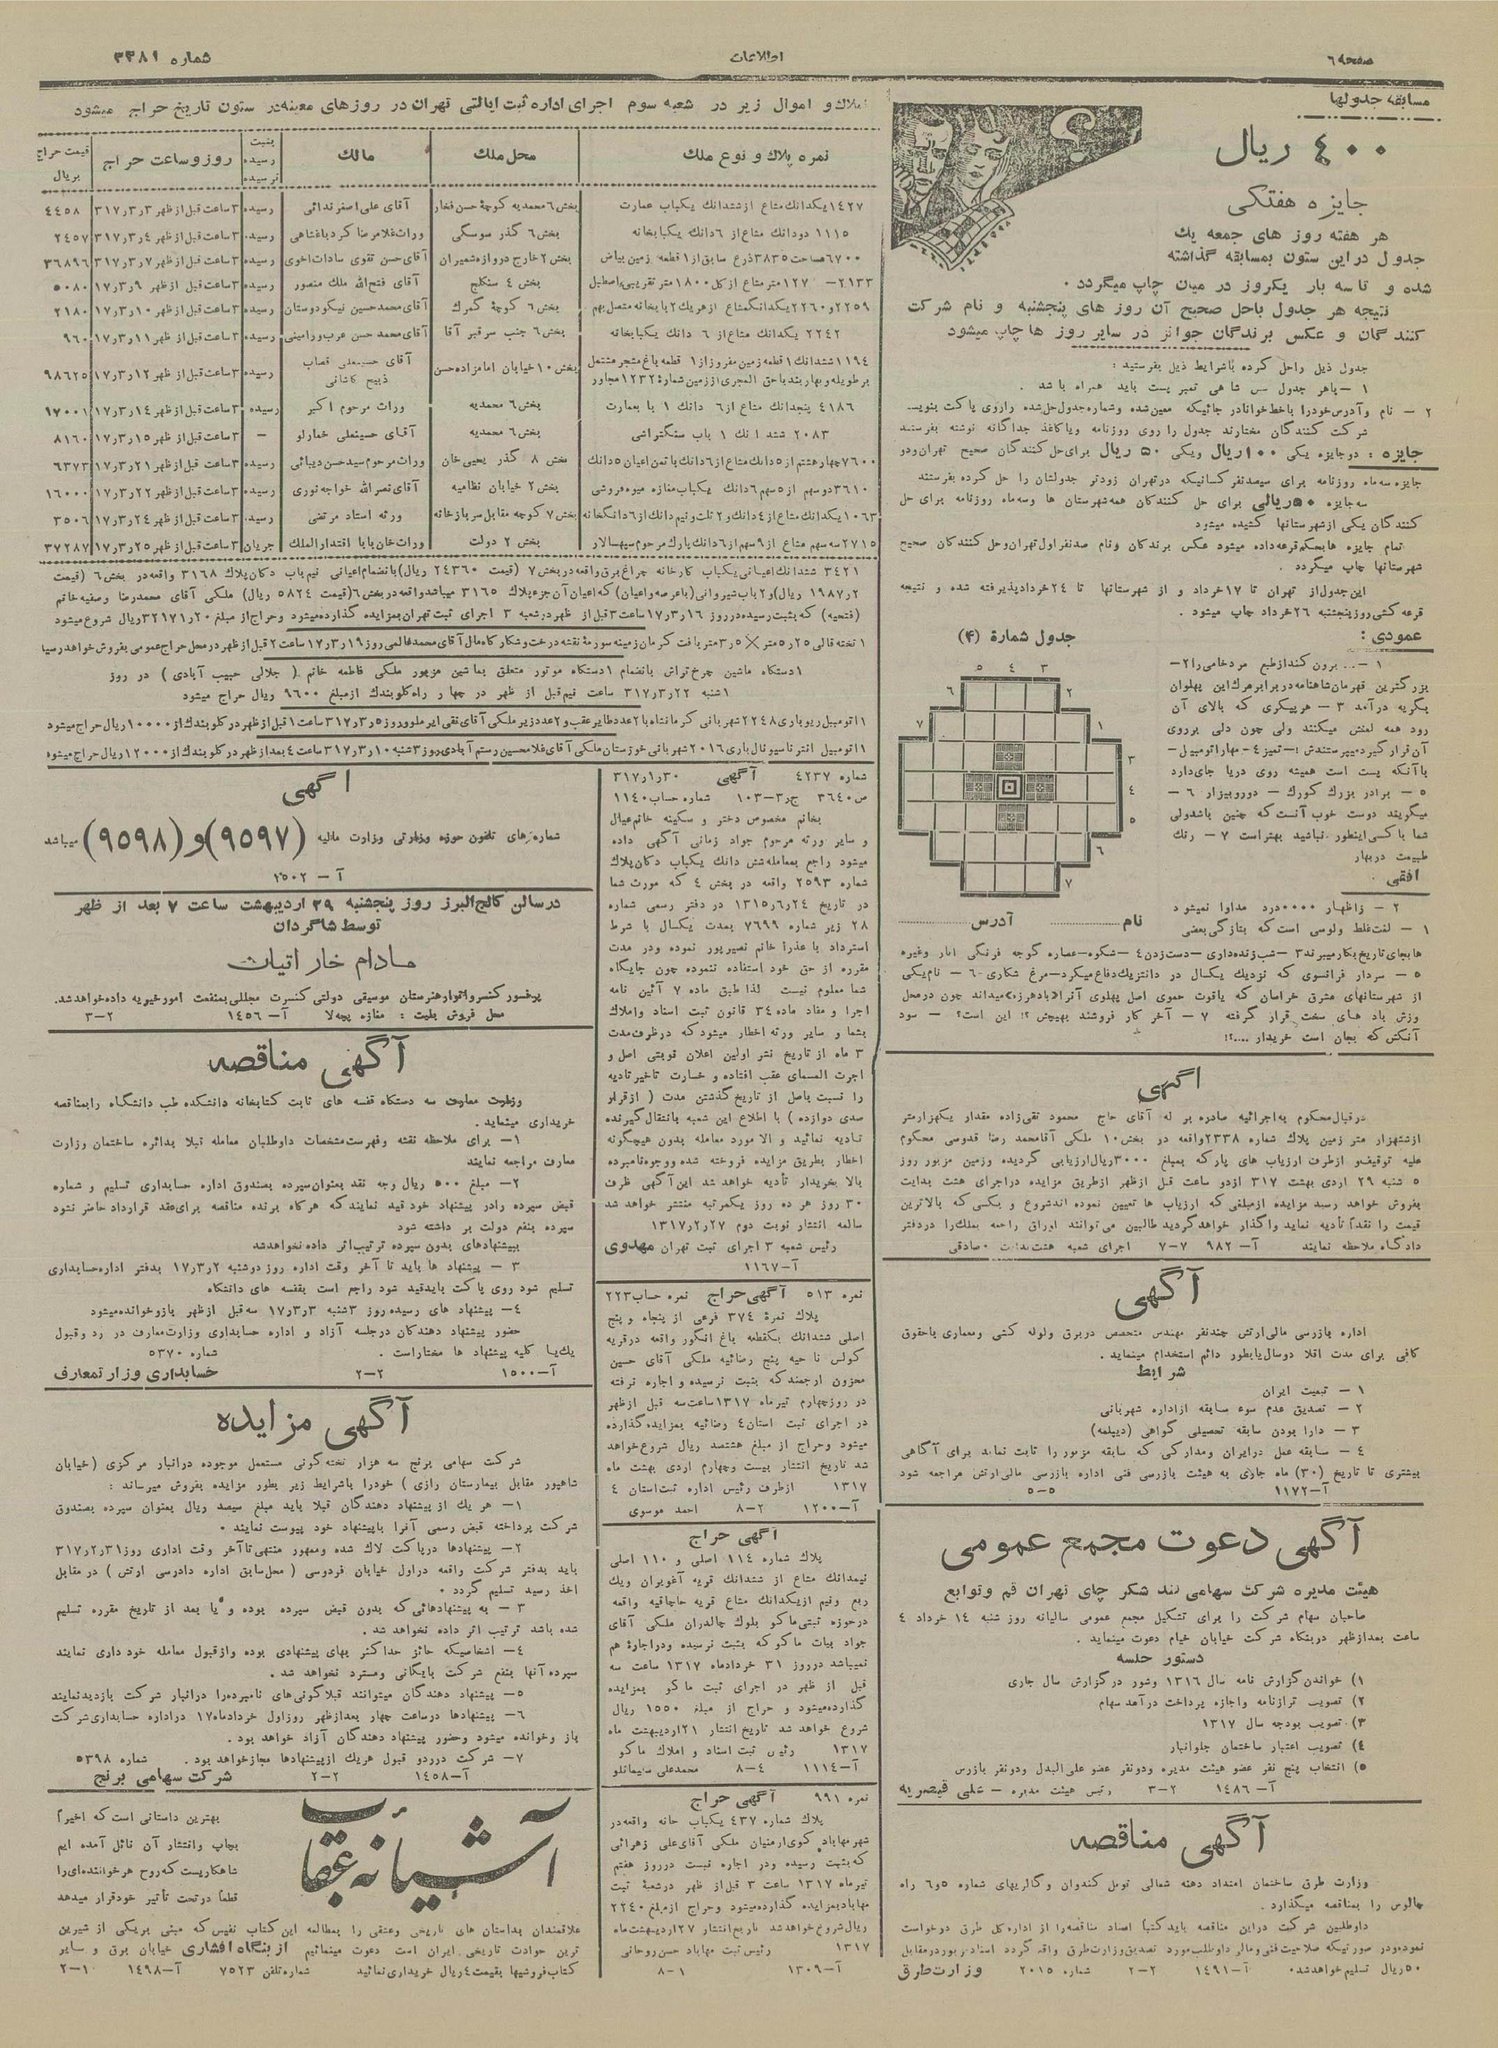 صفحه ۶
اطلاعات
شماره ۳۴۸۱
مسابقه جدولها
۴۰۰ ریال
جایزه هفتگی
هر هفته روز های جمعه یك
جدول در این ستون بمسابقه گذاشته
شده و تا سه بار یکروز در میان چاپ میگردد .
نتیجه هر جدول باحل صحیح آن روز های پنجشنبه و نام شرکت
کنندگان و عکس برندگان جوائز در سایر روز ها چاپ میشود
جدول ذیل راحل کرده باشرایط ذیل بفرستید :
۱ – باهر جدول سی شاهی تمبر پست باید همراه باشد .
۲ – نام وآدرس خودرا باخط خوانادر جائیکه معین شده وشماره جدول حل شده راروی پاکت بنویسد
شرکت کنندگان مختارند جدول را روی روزنامه ویاکاغذ جداگانه نوشته بفرستند
جایزه : دو جایزه یکی ۱۰۰ریال ویکی ۵۰ ریال برای حل کنندگان صحیح تهران ودو
جایزه سه ماه روزنامه برای سیصدنفر کسانیکه درتهران زودتر جدولشان را حل کرده بفرستند
سه جایزه ۵۰ریالی برای حل کنندگان همه شهرستان ها وسه ماه روزنامه برای حل
کنندگان یکی ازشهرستانها کشیده میشود
تمام جایزه هابحکم قرعه داده میشود عکس برندگان ونام صدنفر اول تهران وحل کنندگان صحیح
شهرستانها چاپ میگردد .
این جدول از تهران تا ۱۷ خرداد و از شهرستانها تا ۲۴ خرداد پذیرفته شده و نتیجه
قرعه کشی روز پنجشنبه ۲۶ خرداد چاپ میشود .
عمودی :
جدول شمارۀ (۴)
بزرگترین قهرمان شاهنامه در برابر مرك این پهلوان
بگریه در آمد ۳ – هرپیکری که بالای آن
رود همه لعنش میکنند ولی چون دلی برروی
باآنکه پست است همیشه روی دریا جای دارد
۵ – برادر بزرك كورك – دوروبیزار ۶ –
میگویند دوست خوب آنست که چنین باشد ولی
شما باکسی اینطور نباشید بهتر است ۷ – رنك
طبیعت در بهار
افقی :
نام
آدرس
۲ – زاظهار ۰۰۰۰ درد مداوا نمیشود
۱ – لغت غلط ولوسی است که بتازگی بعضی
هابجای تاریخ بکار میبرند ۳ – شب زنده داری – دست زدن ۴ – شکوه – عصاره گوجه فرنگی انار وغیره
۵ – سردار فرانسوی که نزدیك یکسال در دانتزیك دفاع میکرد – مرغ شکاری ۶ – نام یکی
از شهرستانهای مشرق خراسان که یاقوت حموی اصل پهلوی آنرا «بادهرزه» میداند چون در محل
وزش باد های سخت قرار گرفته ۷ – آخر کار فروشند بهیچش ؟! این است؟ – سود
آنکش که بجان است خریدار ....؟!
آگهی
درقبال محکوم به اجرائیه صادره بر له آقای حاج محمود تقی زاده مقدار یکهزار متر
از ششهزار متر زمین پلاك شماره ۲۳۳۸ واقعه در بخش ۱۰ ملکی آقامحمد رضا قدوسی محکوم
علیه توقیف و ازطرف ارزیاب های پارکه بمبلغ ۳۰۰۰ ریال ارزیابی گردیده وزمین مزبور روز
۵ شنبه ۲۹ اردی بهشت ۳۱۷ ازدو ساعت قبل ازظهر ازطریق مزایده دراجرای هشت بدایت
بفروش خواهد رسید مزایده ازمبلغی که ارزیاب ها تعیین نموده اند شروع و بکسی که بالاترین
قیمت را نقداً تأدیه نماید واگذار خواهد گردید طالبین می توانند اوراق راجعه بملك را در دفتر
دادگاه ملاحظه نمایند آ– ۹۸۲ ۷–۷ اجرای شعبه هشت بدایت . صادقی
آگهی
اداره بازرسی مالی ارتش چند نفر مهندس متخصص در برق ولوله کشی ومعماری باحقوق
کافی برای مدت اقلا دوسال یا بطور دائم استخدام مینماید .
شرایط
۱ – تبعیت ایران
۲ – تصدیق عدم سوء سابقه ازاداره شهربانی
۳ – دارا بودن سابقه تحصیلی گواهی (دیپلمه)
۴ – سابقه عمل در ایران ومدارکی که سابقه مزبور را ثابت نماید برای آگاهی
بیشتری تا تاریخ (۳۰) ماه جاری به هیئت بازرسی فنی اداره بازرسی مالی ارتش مراجعه شود
آ–۱۱۷۲ ۵–۵
آگهی دعوت مجمع عمومی
هیئت مدیره شرکت سهامی قند شکر چای تهران قم وتوابع
صاحبان سهام شرکت را برای تشکیل مجمع عمومی سالیانه روز شنبه ۱۴ خرداد ۴
ساعت بعدازظهر دربنگاه شرکت خیابان خیام دعوت مینماید .
دستور جلسه
۱) خواندن گزارش نامه سال ۱۳۱۶ وشور درگزارش سال جاری
۲) تصویب ترازنامه واجازه پرداخت درآمد سهام
۳) تصویب بودجه سال ۱۳۱۷
۴) تصویب اعتبار ساختمان جلوانبار
۵) انتخاب پنج نفر عضو هیئت مدیره ودونفر عضو علی البدل ودونفر بازرس
آ– ۱۴۸۶ ۲–۳ رئیس هیئت مدیره – علی قیصریه
آگهی مناقصه
وزارت طرق ساختمان امتداد دهنه شمالی تونل کندوان و گالریهای شماره ۵و۶ راه
چالوس را بمناقصه میگذارد .
داوطلبین شرکت دراین مناقصه باید کتباً اسناد مناقصه را از اداره کل طرق درخواست
نموده ودر صورتیکه صلاحیت فنی ومالی داوطلب مورد تصدیق وزارت طرق واقع گردد اسناد مزبور در مقابل
۵۰ ریال تسلیم خواهد شد . آ–۱۴۹۱ ۲–۲ شماره ۲۰۱۵ وزارت طرق
املاك و اموال زیر در شعبه سوم اجرای اداره ثبت ایالتی تهران در روزهای معینه در ستون تاریخ حراج میشود
نمره پلاك و نوع ملك | محل ملك | مالك | بثبت رسیده نرسیده | روز وساعت حراج | قیمت حراج بریال
۱۴۲۷ یکدانك مشاع از ششدانك یکباب عمارت | بخش ۶ محمدیه کوچۀ حسن فخار | آقای علی اصغر ندائی | رسیده | ۳ ساعت قبل از ظهر ۳ر۳ر۳۱۷ | ۴۴۵۸
۱۱۱۵ دودانك مشاع از ۶ دانك یکبابخانه | بخش ۶ گذر سوسکی | وراث غلامرضا کرد باغشاهی | رسیده | ۳ ساعت قبل از ظهر ۴ر۳ر۳۱۷ | ۲۴۵۷
۶۷۰۰ مساحت ۳۸۳۵ ذرع سابق از ۱ قطعه زمین بیاض | بخش ۲ خارج دروازه شمیران | آقای حسن تقوی سادات اخوی | رسیده | ۳ ساعت قبل از ظهر ۷ر۳ر۳۱۷ | ۳۶۸۹۶
۲۱۳۳ – ۱۲۷ متر مشاع از کل ۱۸۰۰ متر تقریبی، اصطبل | بخش ۴ سنگلج | آقای فتح الله ملك منصور | رسیده | ۳ ساعت قبل از ظهر ۹ر۳ر۱۷ | ۵۰۸۰
۲۲۵۹ و ۲۲۶۰ یکدانگ مشاع ازهریك ۲ بابخانه متصل بهم | بخش ۶ کوچۀ گمرك | آقای محمدحسین نیکودوستان | رسیده | ۳ ساعت قبل از ظهر ۱۰ر۳ر۱۷ | ۲۱۸۰
۲۲۴۲ یکدانك مشاع از ۶ دانك یکبابخانه | بخش ۶ جنب سرقبر آقا | آقای محمد حسن عرب ورامینی | رسیده | ۳ ساعت قبل از ظهر ۱۱ر۳ر۱۷ | ۹۶۰
۱۱۹۴ ششدانك ۱ قطعه زمین مفروز از ۱ قطعه باغ مشجر مشتمل
بر طویله و بهاربند باحق المجری از زمین شمارۀ ۱۲۳۲ مجاور | بخش ۱۰ خیابان امامزاده حسن | آقای حسینعلی قصاب ذبیح کاشانی | رسیده | ۳ ساعت قبل از ظهر ۱۲ر۳ر۱۷ | ۹۸۶۲۵
۴۱۸۶ پنجدانك مشاع از ۶ دانك ۱ باب عمارت | بخش ۶ محمدیه | وراث مرحوم اکبر | رسیده | ۳ ساعت قبل از ظهر ۱۴ر۳ر۱۷ | ۱۷۰۰۱
۲۰۸۳ ششدانك ۱ باب سنگتراشی | بخش ۶ محمدیه | آقای حسینعلی خمارلو | – | ۳ ساعت قبل از ظهر ۱۵ر۳ر۱۷ | ۸۱۶۰
۷۶۰۰ چهار هشتم از ۵ دانك مشاع از ۶ دانك باثمن اعیان ۵ دانك | بخش ۸ گذر یحیی خان | وراث مرحوم سید حسن دیبائی | رسیده | ۳ ساعت قبل از ظهر ۲۱ر۳ر۱۷ | ۶۳۷۳
۳۶۱۰ دوسهم از ۵ سهم ۶ دانك یکباب مغازه میوه فروشی | بخش ۲ خیابان نظامیه | آقای نصرالله خواجه نوری | رسیده | ۳ ساعت قبل از ظهر ۲۲ر۳ر۱۷ | ۱۶۰۰۰
۱۰۶۳ یکدانك مشاع از ۴ دانك و ۲ ثلث ونیم دانك از ۶ دانگخانه | بخش ۷ کوچه مقابل سربازخانه | ورثه استاد مرتضی | رسیده | ۳ ساعت قبل از ظهر ۲۴ر۳ر۱۷ | ۳۵۰۶
۲۷۱۵ سه سهم مشاع از ۹ سهم از ۶ دانك پارك مرحوم سپهسالار | بخش ۲ دولت | وراث خان بابا اقتدار الملك | جریان | ۳ ساعت قبل از ظهر ۲۵ر۳ر۱۷ | ۳۷۲۸۷
۳۴۲۱ ششدانك اعیانی یکباب کارخانه چراغ برق واقعه در بخش ۷ (قیمت ۲۴۳۶۰ ریال) بانضمام اعیانی نیم باب دکان پلاك ۳۱۶۸ واقعه در بخش ۶ (قیمت
۲ر۱۹۸۷ ریال) و ۲ باب شیروانی (باعرصه واعیان) که اعیان آن جزء پلاك ۳۱۶۵ میباشد واقعه در بخش ۶ (قیمت ۵۸۲۴ ریال) ملکی آقای محمدرضا وصفیه خانم
(فتحیه) که بثبت رسیده در روز ۱۶ر۳ر۱۷ ساعت ۳ قبل از ظهر در شعبه ۳ اجرای ثبت تهران بمزایده گذارده میشود وحراج از مبلغ ۲۰ر۳۲۱۷۱ ریال شروع میشود
۱ تخته قالی ۲۵ر۵ متر × ۵ر۳ متر بافت کرمان زمینه سورمۀ نقشه درخت وشکار گاه مال آقای محمد غالمی روز ۱۹ر۳ر۱۷ ساعت ۲ قبل از ظهر در محل حراج عمومی بفروش خواهد رسید
۱ دستگاه ماشین چرخ تراش بانضمام ۱ دستگاه موتور متعلق بماشین مزبور ملکی فاطمه خانم ( جلالی حبیب آبادی ) در روز
۱ شنبه ۲۲ر۳ر۳۱۷ ساعت نیم قبل از ظهر در چهار راه گلوبندك ازمبلغ ۹۶۰۰ ریال حراج میشود
۱ اتومبیل ریوباری ۲۲۴۸ شهربانی کرمانشاه با ۲ عدد طایر عقب و ۲ عدد زیر ملکی آقای تقی ایرملو روز ۵ر۳ر۳۱۷ ساعت ۱ قبل از ظهر در گلوبندك از ۱۰۰۰۰ ریال حراج میشود
۱ اتومبیل انترناسیونال باری ۲۰۱۶ شهربانی خوزستان ملکی آقای غلامحسین رستم آبادی روز ۳ شنبه ۱۰ر۳ر۳۱۷ ساعت ۴ بعد از ظهر در گلوبندك از ۱۲۰۰۰ ریال حراج میشود
شماره ۴۲۳۷ آگهی ۳۰ر۱ر۳۱۷
ص ۳۶۴۰ ج ر۳–۱۰۳ شماره حساب ۱۱۴۰
بخانم مخصوص دختر و سکینه خانم عیال
و سایر ورثه مرحوم جواد زمانی آگهی داده
میشود راجع بمعامله شش دانك یکباب دکان پلاك
شماره ۲۵۹۳ واقعه در بخش ۴ که مورث شما
در تاریخ ۲۴ر۶ر۱۳۱۵ در دفتر رسمی شماره
۲۸ زیر شماره ۷۶۹۹ بمدت یکسال با شرط
استرداد با عذرا خانم نصیرپور نموده ودر مدت
مقرره از حق خود استفاده ننموده چون جایگاه
شما معلوم نیست لذا طبق ماده ۷ آئین نامه
اجرا و مفاد ماده ۳۴ قانون ثبت اسناد واملاك
بشما و سایر ورثه اخطار میشود که در ظرف مدت
۳ ماه از تاریخ نشر اولین اعلان نوبتی اصل و
اجرت المسمای عقب افتاده و خسارت تاخیر تادیه
را نسبت باصل از تاریخ گذشتن مدت ( از قرار
صدی دوازده ) با اطلاع این شعبه بانتقال گیرنده
تادیه نمائید و الا مورد معامله بدون هیچگونه
اخطار بطریق مزایده فروخته شده ووجوه نامبرده
بالا بخریدار تأدیه خواهد شد این آگهی ظرف
۳۰ روز هر ده روز یکمرتبه منتشر خواهد شد
سالمه انتشار نوبت دوم ۲۷ر۲ر۱۳۱۷
رئیس شعبه ۳ اجرای ثبت تهران مهدوی
آ–۱۱۶۷
نمره ۵۱۳ آگهی حراج نمره حساب ۲۲۳
پلاك نمرۀ ۳۷۴ فرعی از پنجاه و پنج
اصلی ششدانك یکقطعه باغ انگور واقعه در قریه
کولس ناحیه پنج رضائیه ملکی آقای حسین
محزون ارجمند که بثبت نرسیده و اجاره نرفته
در روز چهارم تیرماه ۱۳۱۷ ساعت سه قبل ازظهر
در اجرای ثبت استان ۴ رضائیه بمزایده گذارده
میشود وحراج از مبلغ هشتصد ریال شروع خواهد
شد تاریخ انتشار بیست وچهارم اردی بهشت ماه
۱۳۱۷ ازطرف رئیس اداره ثبت استان ۴
آ–۱۲۰۰ ۲–۸ احمد موسوی
آگهی حراج
پلاك شماره ۱۱۴ اصلی و ۱۱۰ اصلی
نیمدانك مشاع از ششدانك قریه آغوبران ویك
ربع ونیم ازیکدانك مشاع قریه حاجاقیه واقعه
درحوزه ثبتی ماکو بلوك چالدران ملکی آقای
جواد بیات ماکو که بثبت نرسیده ودر اجارۀ هم
نمیباشد در روز ۳۱ خردادماه ۱۳۱۷ ساعت سه
قبل از ظهر در اجرای ثبت ماکو بمزایده
گذارده میشود و حراج از مبلغ ۱۵۵۰ ریال
شروع خواهد شد تاریخ انتشار ۲۱ اردیبهشت ماه
۱۳۱۷ رئیس ثبت اسناد و املاك ماکو
آ–۱۱۱۴ ۴–۸ محمد علی سلیمانلو
نمره ۹۹۱ آگهی حراج
پلاك شماره ۴۳۷ یکباب خانه واقعه در
شهر مهاباد کوی ارمنیان ملکی آقای علی زهرائی
که بثبت رسیده ودر اجاره نیست درروز هفتم
تیر ماه ۱۳۱۷ ساعت ۳ قبل از ظهر در شعبۀ ثبت
مهاباد بمزایده گذارده میشود وحراج ازمبلغ ۲۲۴۰
ریال شروع خواهد شد تاریخ انتشار ۲۷ اردیبهشت ماه
۱۳۱۷ رئیس ثبت مهاباد حسن روحانی
آ–۱۳۰۹ ۱–۸
آگهی
شماره های تلفون حوزه وزارتی وزارت مالیه (۹۵۹۷) و (۹۵۹۸) میباشد
آ – ۱۵۰۲
در سالن کالج البرز روز پنجشنبه ۲۹ اردیبهشت ساعت ۷ بعد از ظهر
توسط شاگردان
مادام خاراتیان
پرفسور کنسرواتوار هنرستان موسیقی دولتی کنسرت مجللی بمنفعت امور خیریه داده خواهد شد.
محل فروش بلیت : مغازه پچه لا آ– ۱۴۵۶ ۲–۳
آگهی مناقصه
وزارت معارف سه دستگاه قفسه های ثابت کتابخانه دانشکده طب دانشگاه را بمناقصه
خریداری مینماید .
۱– برای ملاحظه نقشه وفهرست مشخصات داوطلبان معامله قبلا بدائره ساختمان وزارت
معارف مراجعه نمایند
۲– مبلغ ۵۰۰ ریال وجه نقد بعنوان سپرده بصندوق اداره حسابداری تسلیم و شماره
قبض سپرده رادر پیشنهاد خود قید نمایند که هرگاه برنده مناقصه برای عقد قرارداد حاضر نشود
سپرده بنفع دولت بر داشته شود
بپیشنهادهای بدون سپرده ترتیب اثر داده نخواهد شد
۳ – پیشنهاد ها باید تا آخر وقت اداره روز دوشنبه ۲ر۳ر۱۷ بدفتر اداره حسابداری
تسلیم شود روی پاکت باید قید شود راجع است بقفسه های دانشگاه
۴– پیشنهاد های رسیده روز ۳ شنبه ۳ر۳ر۱۷ سه قبل از ظهر باز و خوانده میشود
حضور پیشنهاد دهندگان در جلسه آزاد و اداره حسابداری وزارت معارف در رد و قبول
یك یا کلیه پیشنهاد ها مختار است . شماره ۵۳۷۰
آ–۱۵۰۰ ۲–۲ حسابداری وزارت معارف
آگهی مزایده
شرکت سهامی برنج سه هزار تخته گونی مستعمل موجوده در انبار مرکزی (خیابان
شاهپور مقابل بیمارستان رازی ) خودرا باشرایط زیر بطور مزایده بفروش میرساند :
۱– هر یك از پیشنهاد دهندگان قبلا باید مبلغ سیصد ریال بعنوان سپرده بصندوق
شرکت پرداخته قبض رسمی آنرا باپیشنهاد خود پیوست نمایند .
۲– پیشنهادها درپاکت لاك شده وممهور منتهی تا آخر وقت اداری روز ۳۱ر۲ر۳۱۷
باید بدفتر شرکت واقعه دراول خیابان فردوسی ( محل سابق اداره دادرسی ارتش ) در مقابل
اخذ رسید تسلیم گردد .
۳ – به پیشنهادهائی که بدون قبض سپرده بوده و یا بعد از تاریخ مقرره تسلیم
شده باشد ترتیب اثر داده نخواهد شد .
۴– اشخاصیکه حائز حداکثر بهای پیشنهادی بوده وازقبول معامله خود داری نمایند
سپرده آنها بنفع شرکت بایگانی ومسترد نخواهد شد .
۵– پیشنهاد دهندگان میتوانند قبلا گونی های نامبرده را درانبار شرکت بازدید نمایند
۶– پیشنهادها درساعت چهار بعدازظهر روز اول خرداد ماه ۱۷ در اداره حسابداری شرکت
باز وخوانده میشود وحضور پیشنهاد دهندگان آزاد خواهد بود.
۷– شرکت دررد و قبول هریك ازپیشنهادها مجاز خواهد بود . شماره ۵۳۹۸
آ–۱۴۵۸ ۲–۲ شرکت سهامی برنج
آشیانه عقاب
بهترین داستانی است که اخیراً
بچاپ وانتشار آن نائل آمده ایم
شاهکاریست که روح هر خواننده ای را
قطعاً در تحت تأثیر خود قرار میدهد
علاقمندان بداستان های تاریخی وعشقی را بمطالعه این کتاب نفیس که مبنی بریکی از شیرین
ترین حوادث تاریخی ایران است دعوت مینمائیم از بنگاه افشاری خیابان برق و سایر
کتابفروشیها بقیمت ۴ ریال خریداری نمائید شماره تلفن ۷۵۲۳ آ–۱۴۹۸ ۱–۲